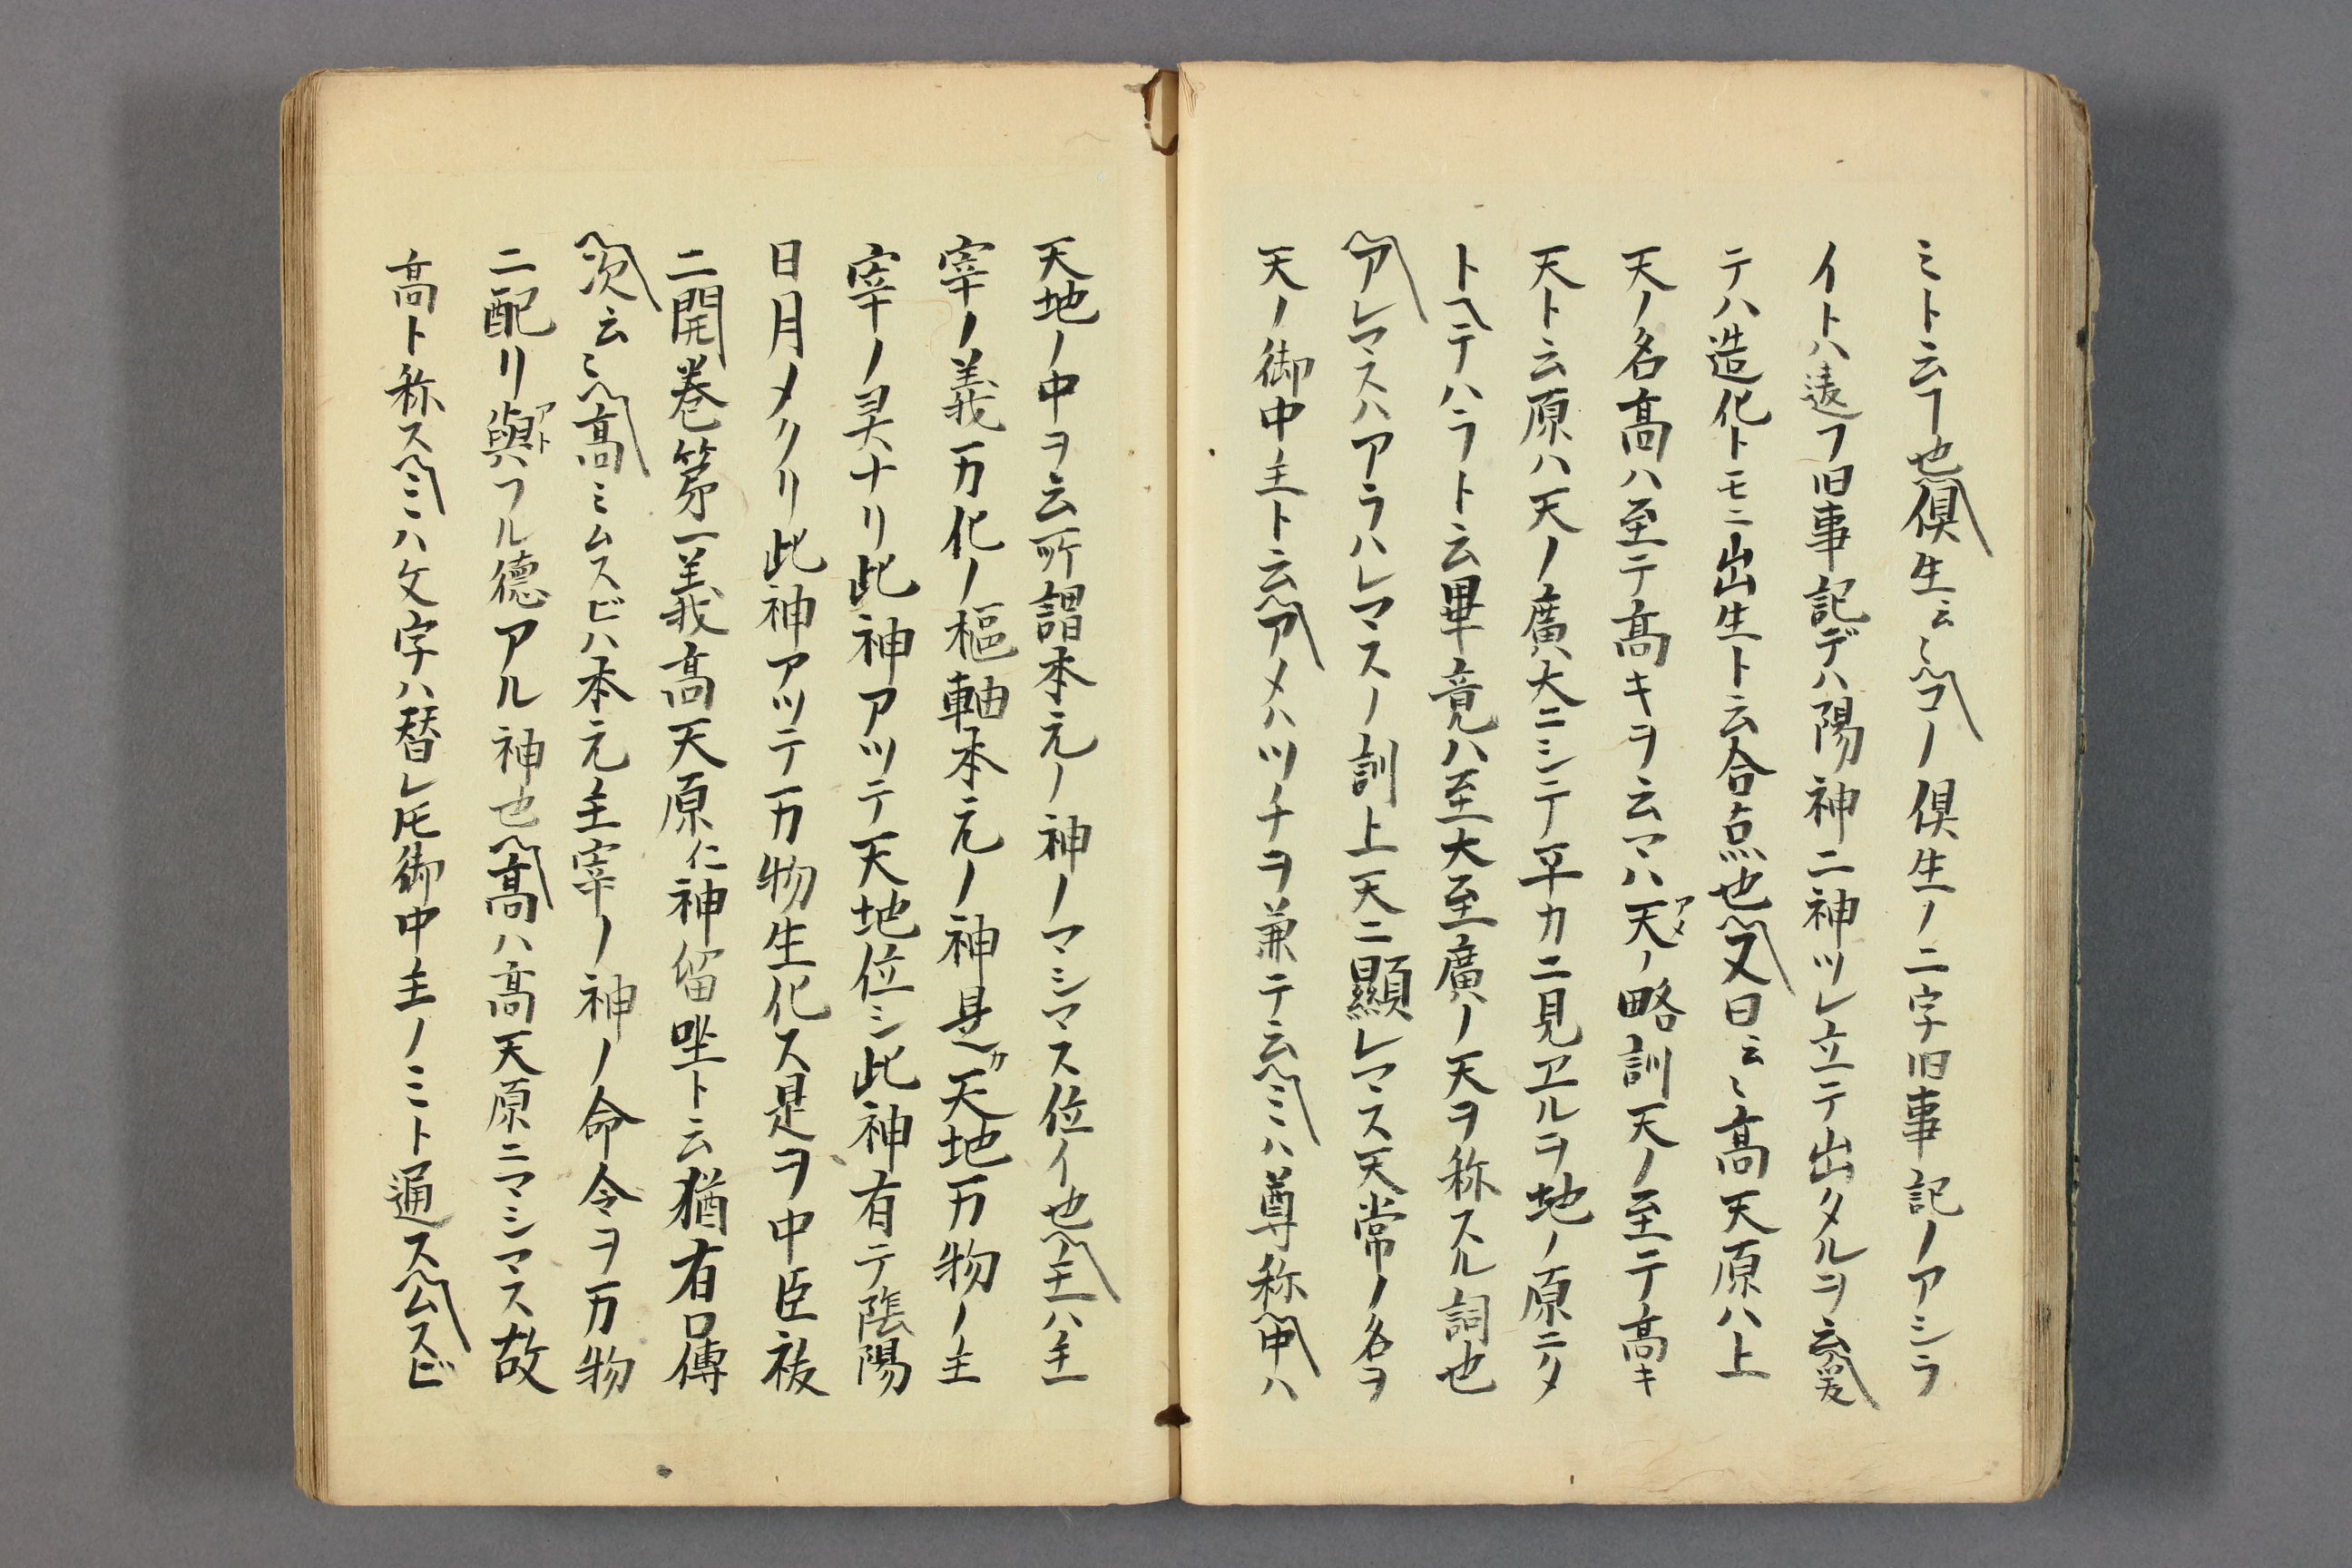 ミト云ヿ也〽倶生云〻〽コノ倶生ノ二字旧事記ノアシラ
イトハ違フ旧事記デハ陽神ニ神ツレ立テ出タルヲ云〽爰
テハ造化トモニ出生ト云合点也〽又曰云〻高天原ハ上
天ノ名高ハ至テ高キヲ云マハ天アメノ略訓天ノ至テ高キ
天ト云原ハ天ノ廣大ニシテ平カニ見ヱルヲ地ノ原ニタ
トヘテハラト云畢竟ハ至大至廣ノ天ヲ称スル詞也
〽アレマスハアラハレマスノ訓上天ニ顯レマス天常ノ名ヲ
天ノ御中主ト云〽アメハツチヲ兼テ云〽ミハ尊称〽中ハ
天地ノ中ヲ云所謂本元ノ神ノマシマス位イ也〽主ハ主
宰ノ義万化ノ樞軸本元ノ神是カ天地万物ノ主
宰ノ灵ナリ此神アツテ天地位シ此神有テ陰陽
日月メクリ此神アツテ万物生化ス是ヲ中臣祓
ニ開巻第一義高天原仁神留坐ト云猶有口傳
〽次云〻〽高ミムスビハ本元主宰ノ神ノ命令ヲ万物
ニ配リ與アトフル徳アル神也〽高ハ高天原ニマシマス故
高ト称ス〽ミハ文字ハ替レ𪜈御中主ノミト通ス〽ムスビ